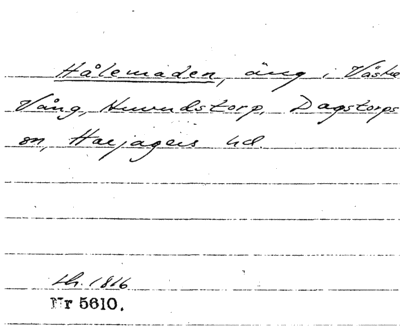 Hålemaden, äng i Västra
Vång, Huvudstorp, Dagstorps
sn, Harjagers hd.
Lh. 1816
Nr 5610.